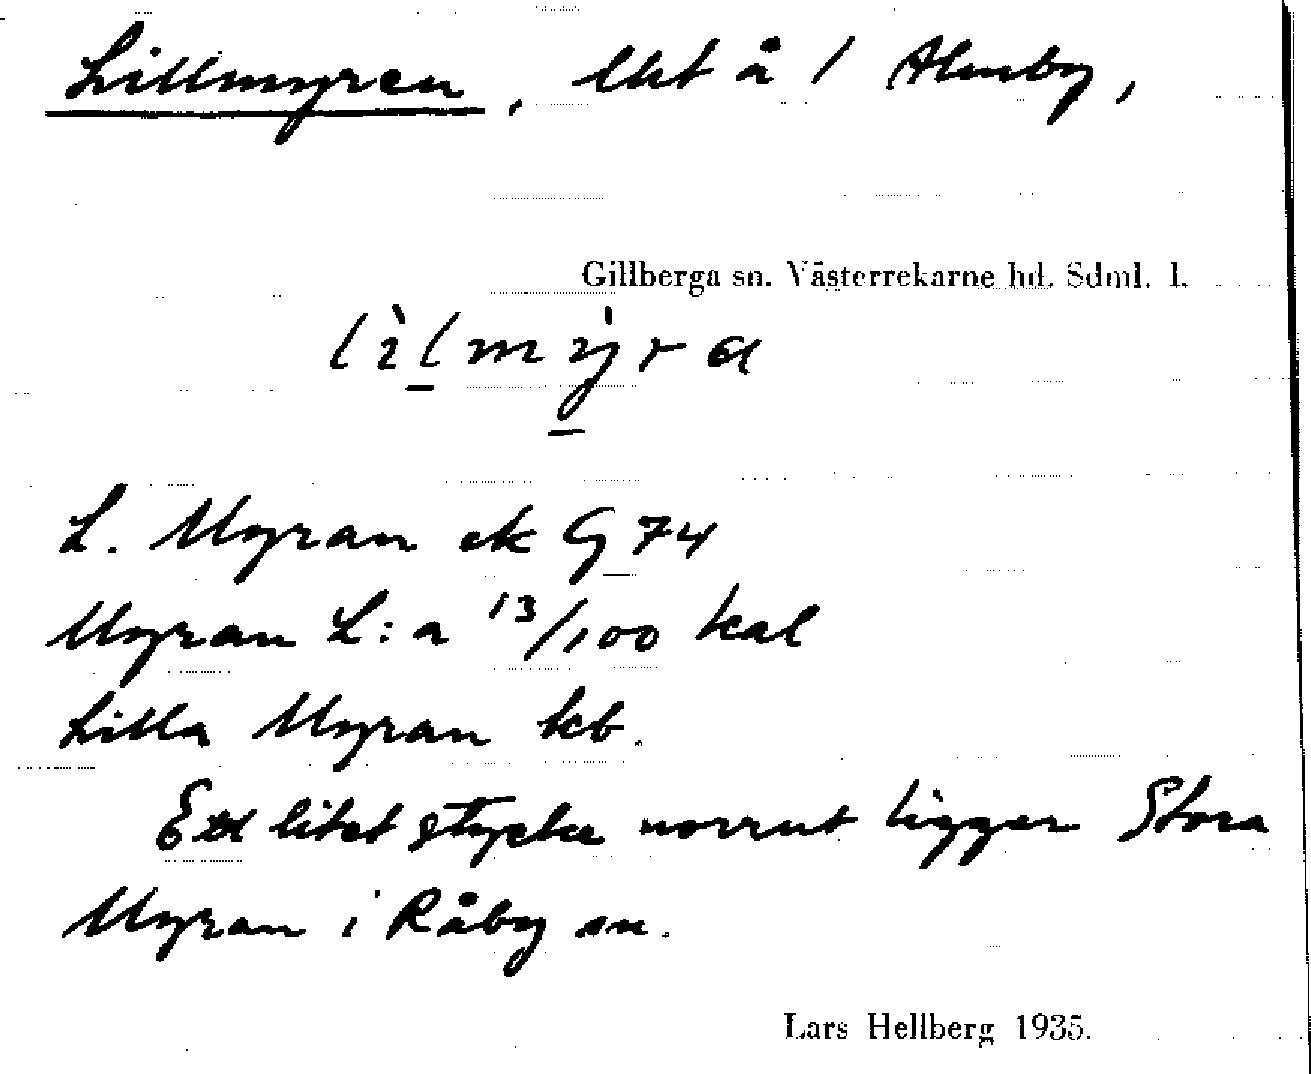 Lillmyren, lht å 1 Almby,
Gillberga sn. Västerrekarne hd. Sdml. l.
lìlmy̍ra
L. Myran ek G 74
Myran L:a 13/100 kal
Lilla Myran kb.
Ett litet stycke norrut ligger Stora
Myran i Råby sn.
Lars Hellberg 1935.